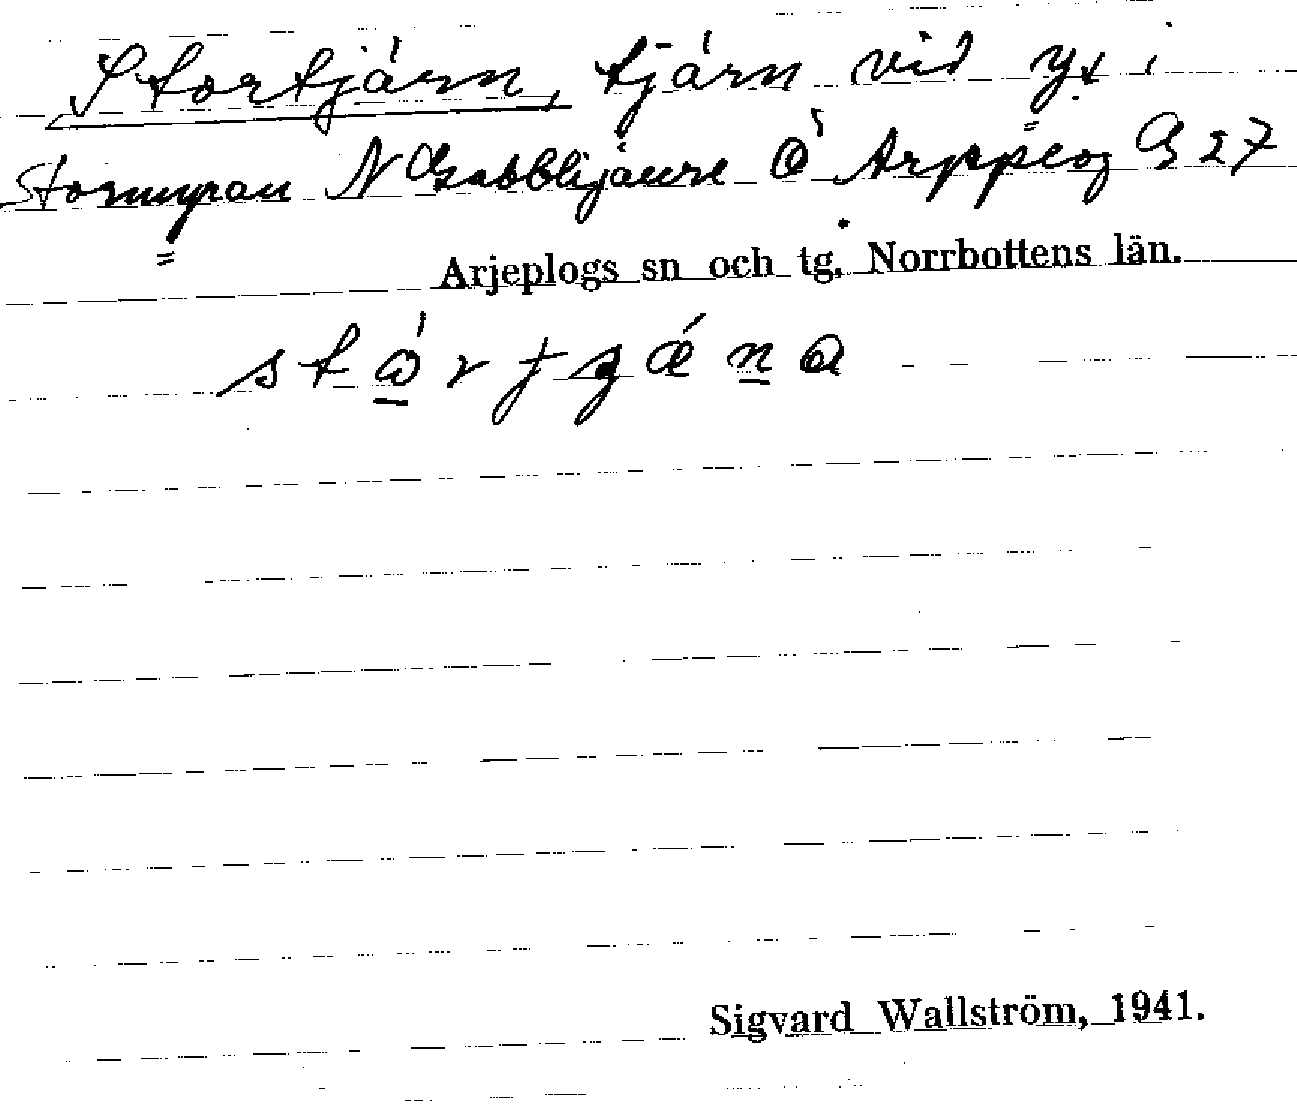 Stortjärn, tjärn vid yx i
Stormyran N Gabblijaure Ö Arjeplog G 27
Arjeplogs sn och tg, Norrbottens län.
Sigvard Wallström, 1941.